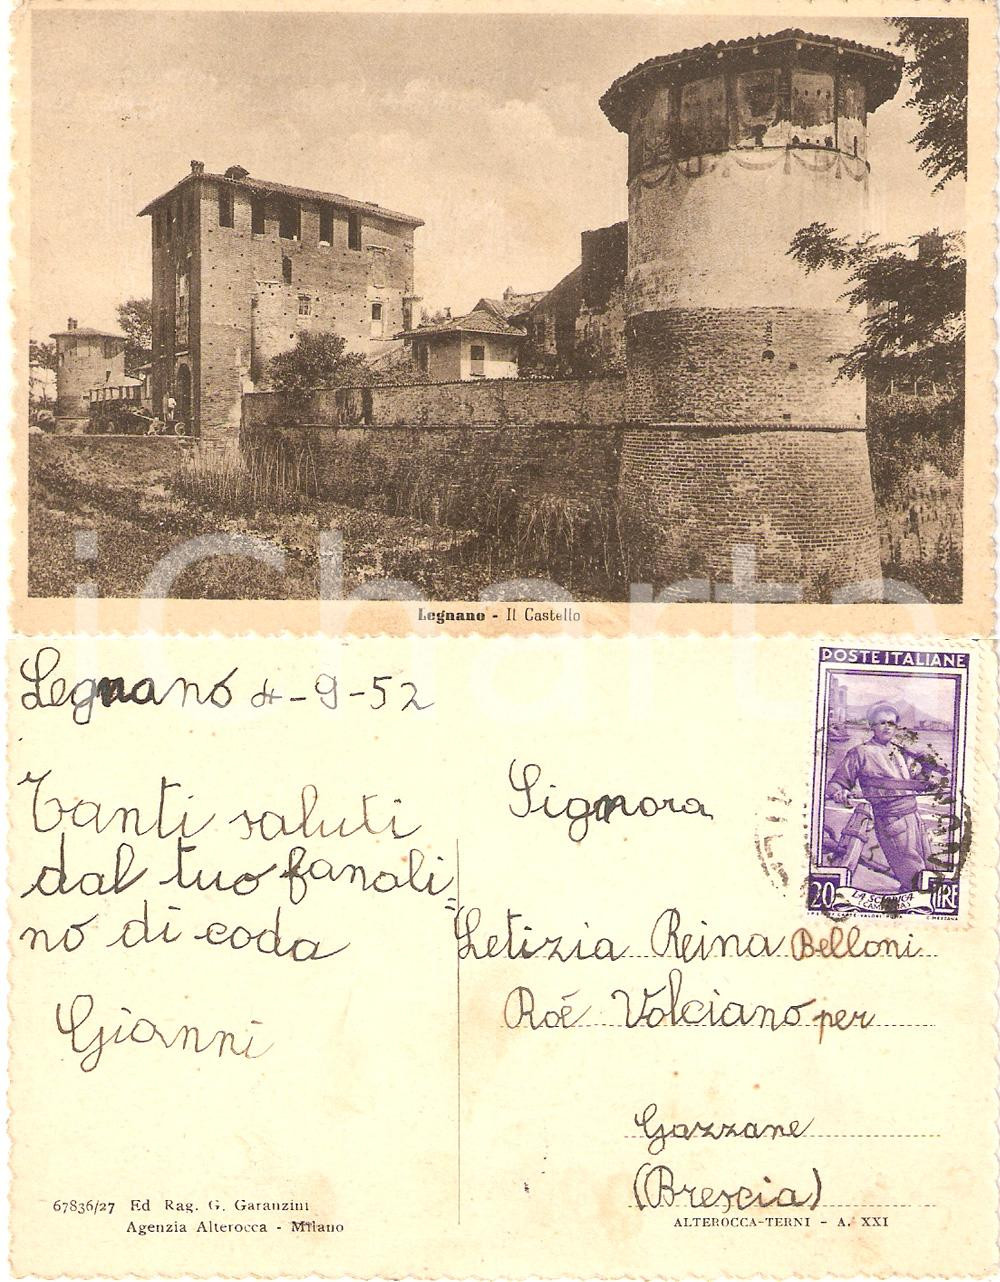 Legnano - Il Castello
iCharta
Legnano 4-9-52
Tanti saluti
dal tuo fanali=
no di coda
Gianni
POSTE ITALIANE
20 LIRE
LA SCIABICA
(CAMPANIA)
Signora
Letizia Reina Belloni
Roé Volciano per
Gazzane
(Brescia)
67836/27 Ed Rag. G. Garanzini
Agenzia Alterocca - Milano
ALTEROCCA-TERNI - A. XXI